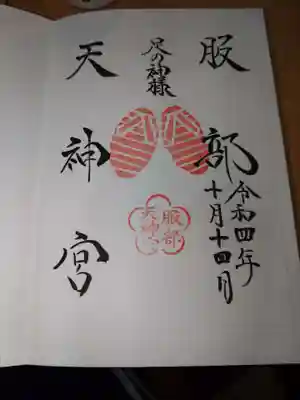 服部
足の神様
天神宮
令和四年
十月十四日
服部
天神